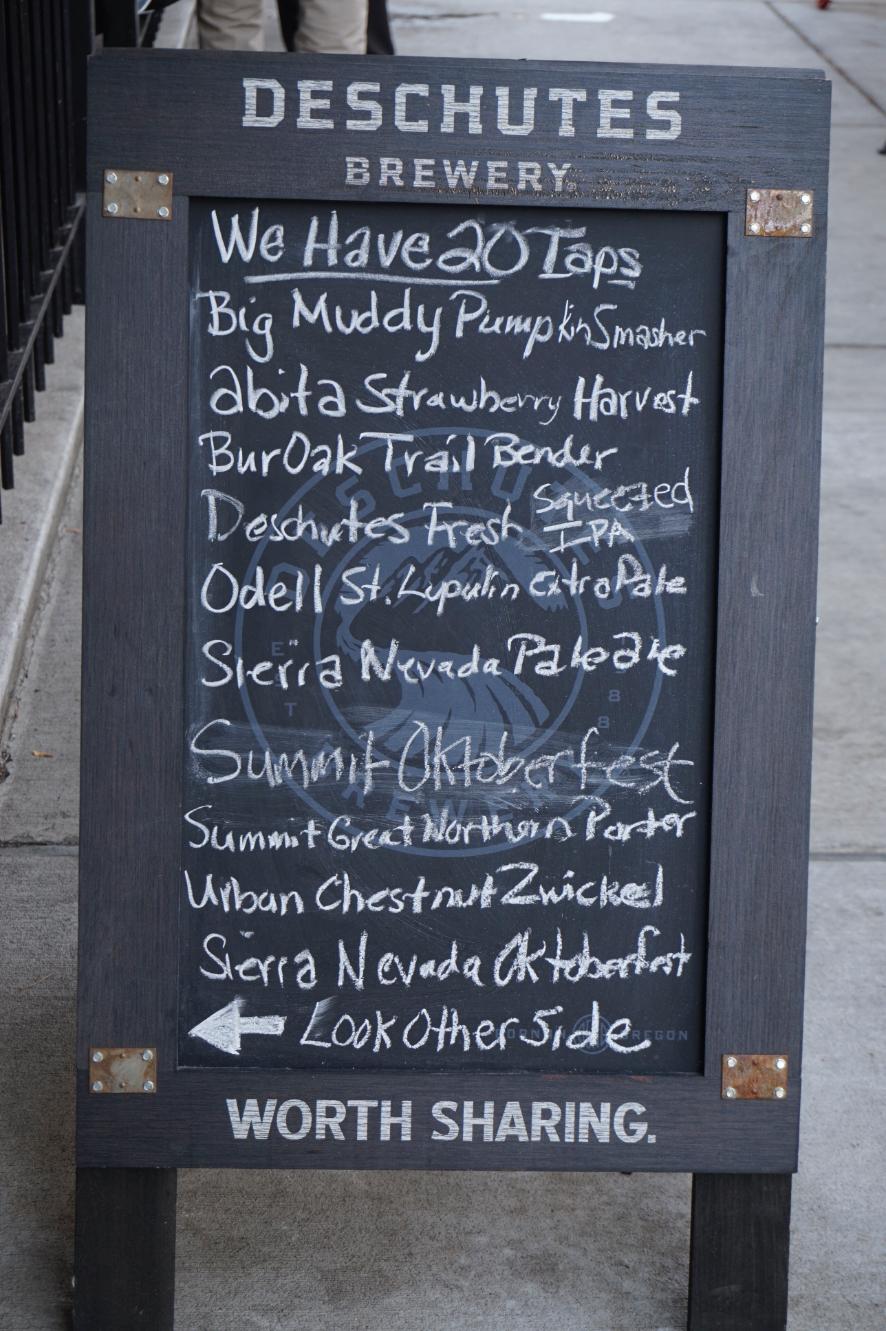 DESCHUTES
BREWERY
We Have 20 Taps
Big Muddy Pumpkin Smasher
abita Strawberry Harvest
Bur Oak Trail Bender
Deschutes Fresh Squeezed IPA
Odell St. Lupulin Extra Pale
Sierra Nevada Pale ale
Summit Oktoberfest
Summit Great Northern Porter
Urban Chestnut Zwickel
Sierra Nevada Oktoberfest
Look Other Side
WORTH SHARING.
DESCHUTES
BREWERY
EST
88
OREGON